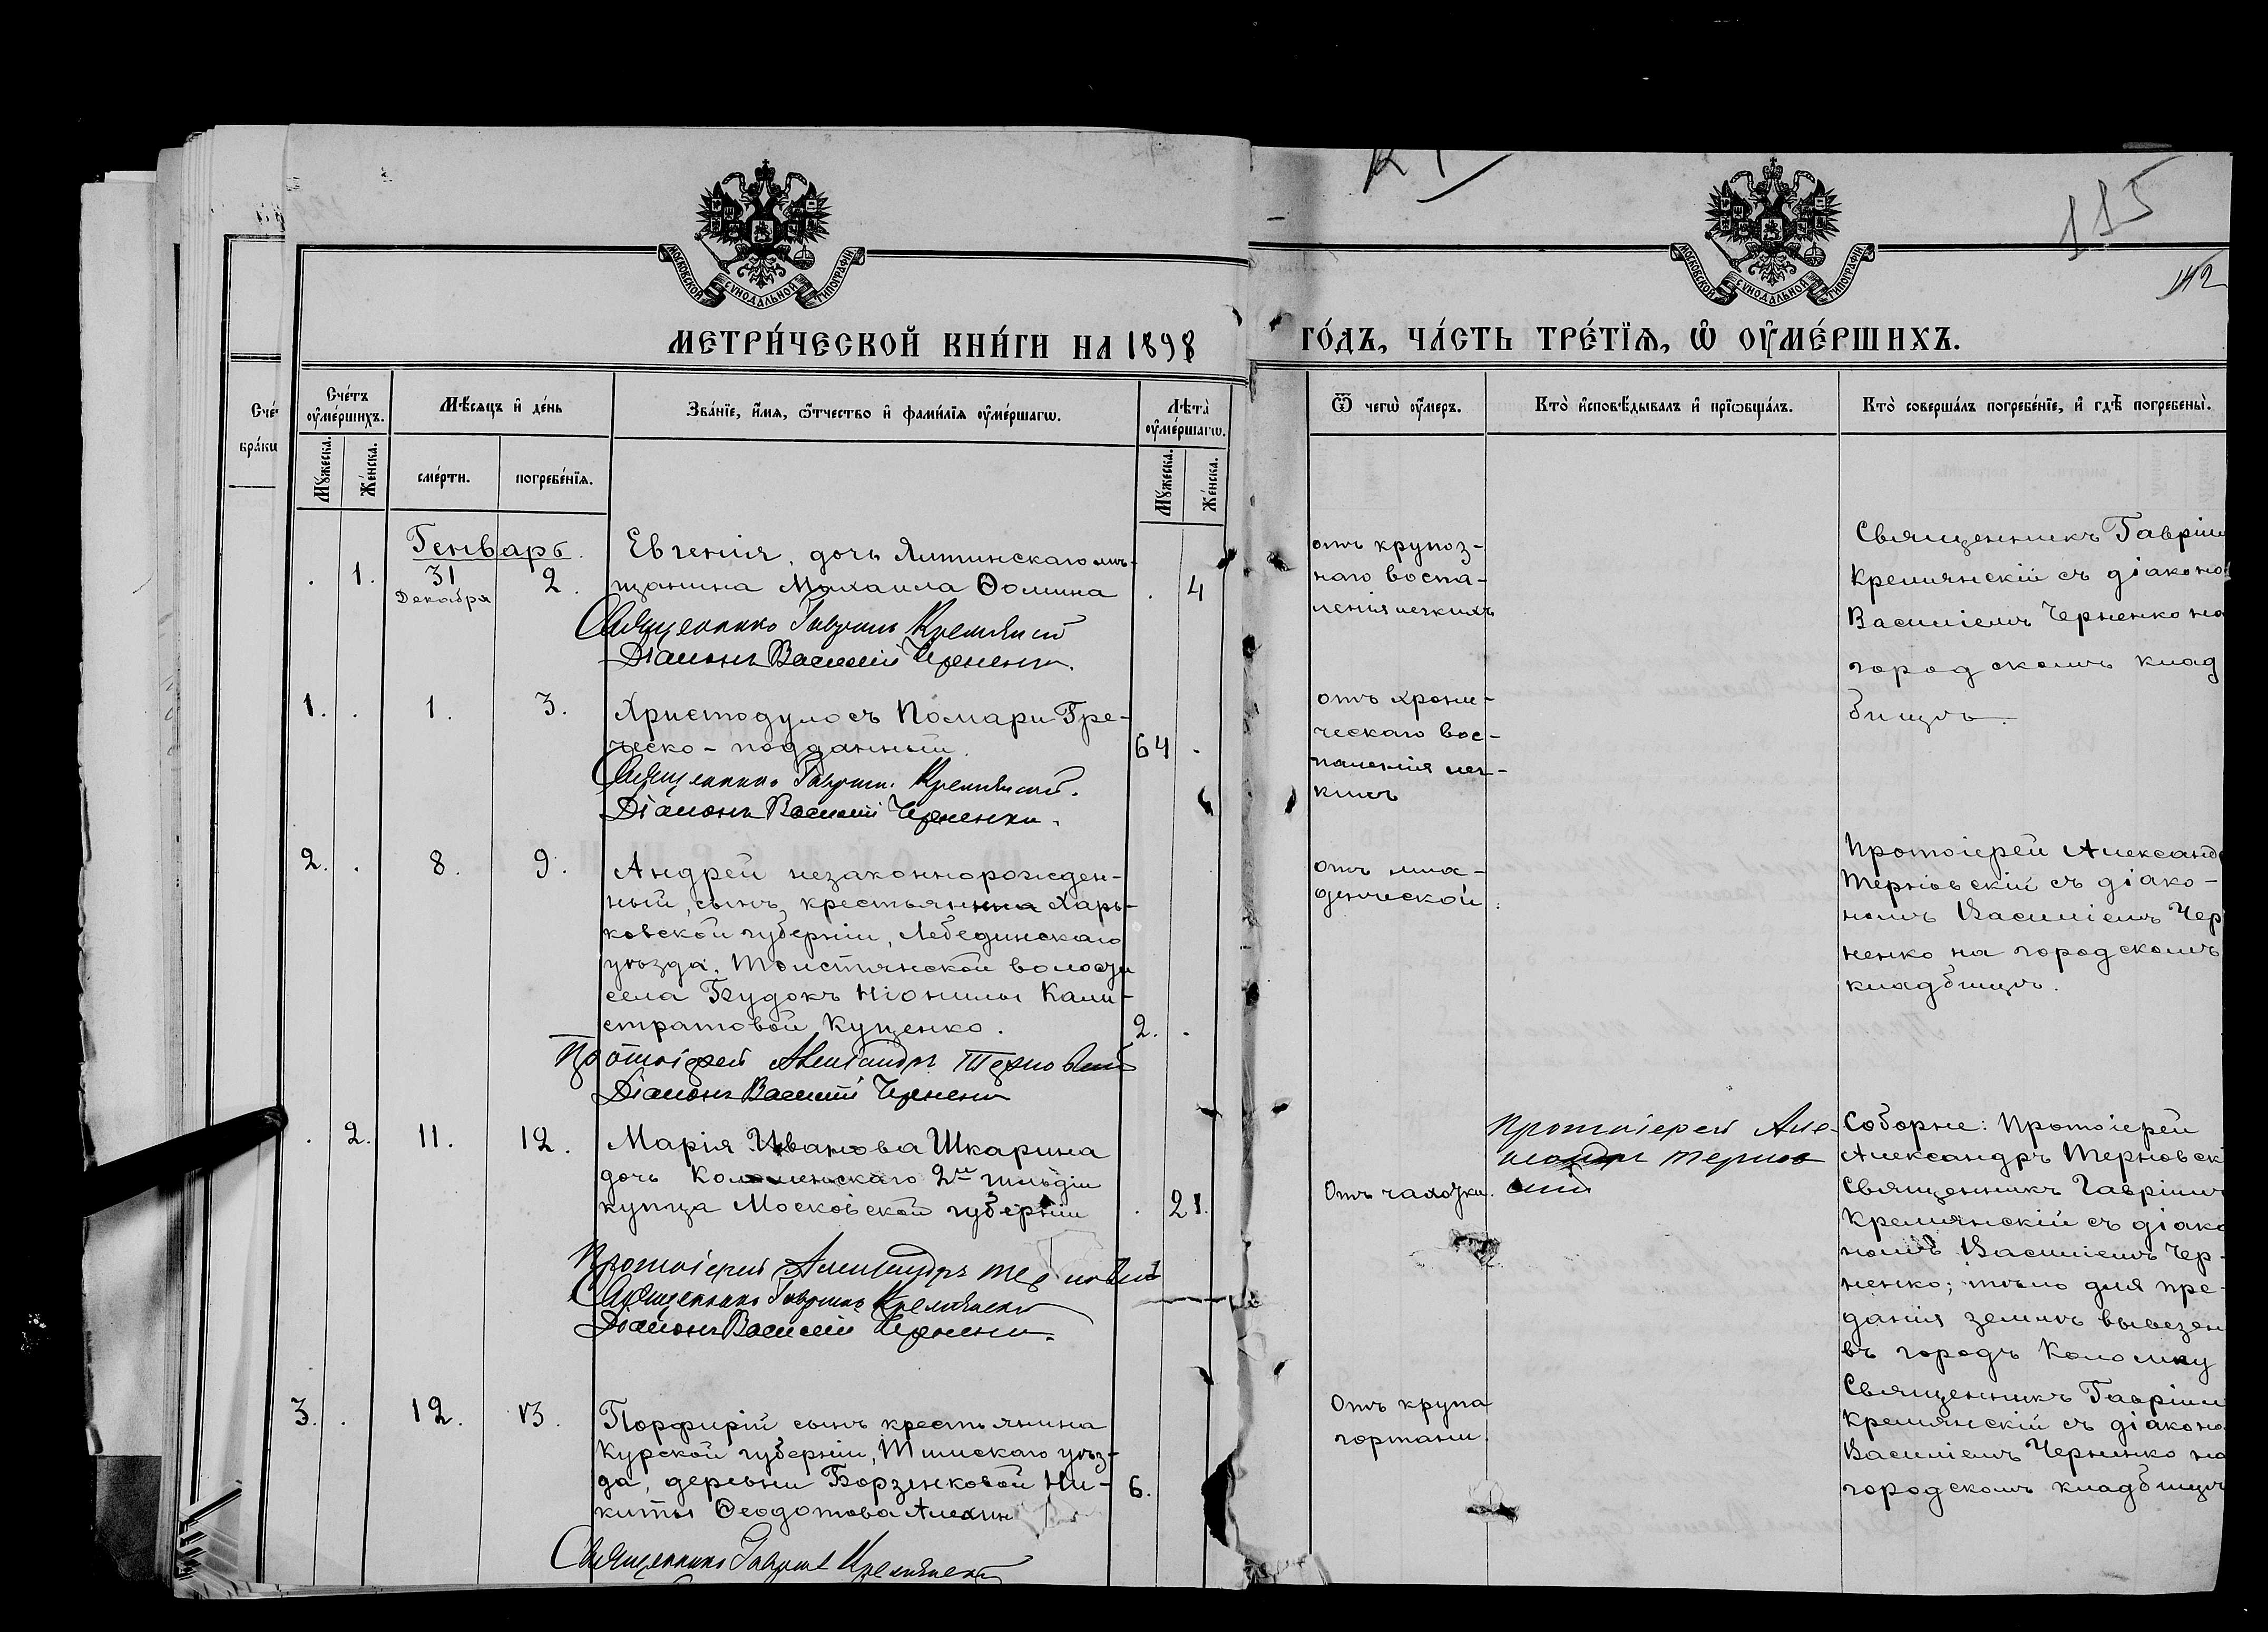 115
112
МОСКОВСКОЙ СѴНОДАЛЬНОЙ ТИПОГРАФІИ.
МОСКОВСКОЙ СѴНОДАЛЬНОЙ ТИПОГРАФІИ.
МЕТРИ́ЧЕСКОЙ КНИ́ГИ НА 1898
ГО́ДЪ, ЧА́СТЬ ТРЕ́ТЇѦ, Ѽ ОУ҆МЕ́РШИХЪ.
Сче́тъ оу҆ме́ршихъ.
Мѣ́сяцъ и҆ де́нь
Зва́нїе, и҆́мя, ѻ҆́тчество и҆ фами́лїя оу҆ме́ршагѡ.
Лѣта̀ оу҆ме́ршагѡ.
Ѿ чегѡ̀ оу҆́меръ.
Кто̀ и҆сповѣ́дывалъ и҆ прїѡбща́лъ.
Кто̀ соверша́лъ погребе́нїе, и҆ гдѣ̀ погребены̀.
Му́жеска.
Же́нска.
сме́рти.
погребе́нїя.
Му́жеска.
Же́нска.
Генварь.
. 1. 31 Декабря 2.
Евгенія, дочь Ялтинскаго мѣ-
щанина Михаила Ѳомина . 4
Священникъ Гавріилъ Кремянскій
Діаконъ Василій Черненко.
отъ крупоз-
наго воспа-
ленія легкихъ
Священникъ Гавріил
Кремянскій съ діаконо
Василіемъ Черненко на
городскомъ клад
бищѣ.
1. . 1. 3.
Христодулосъ Помари Гре-
ческо-подданный. 64 .
Священникъ Гавріилъ Кремянскій.
Діаконъ Василій Черненко.
отъ хрони-
ческаго вос-
паленія лег-
кихъ
2. . 8. 9.
Андрей незаконнорожден-
ный, сынъ крестьянина Харь-
ковской губерніи, Лебединскаго
уѣзда, Толстянской волости
села Будокъ Ніонилы Кали-
стратовой Куценко. 2. .
Протоіерей Александръ Терновскій
Діаконъ Василій Черненко
отъ мла-
денческой.
Протоіерей Александ
Терновскій съ діако-
номъ Василіемъ Чер
ненко на городскомъ
кладбищѣ.
. 2. 11. 12.
Марія Иванова Шкарина
дочь Коломенскаго 2й гильдіи
купца Московской губерніи . 21.
Протоіерей Александръ Терновскій
Священникъ Гавріилъ Кремянскій
Діаконъ Василій Черненко.
Отъ чахотки.
Протоіерей Але-
ксандръ Тернов
скій
Соборне: Протоіерей
Александръ Терновск
Священникъ Гавріилъ
Кремянскій съ діако
номъ Василіемъ Чер-
ненко; тѣло для пре-
данія землѣ вывезен
въ городъ Коломну
3. . 12. 13.
Порфирій сынъ крестьянина
Курской губерніи, Тимскаго уѣз-
да, деревни Борзенковой Ни-
киты Ѳеодотова Алехин 6.
Священникъ Гавріилъ Кремянскій
Отъ крупа
гортани.
Священникъ Гавріил
Кремянскій съ діаконо
Василіемъ Черненко на
городскомъ кладбищѣ